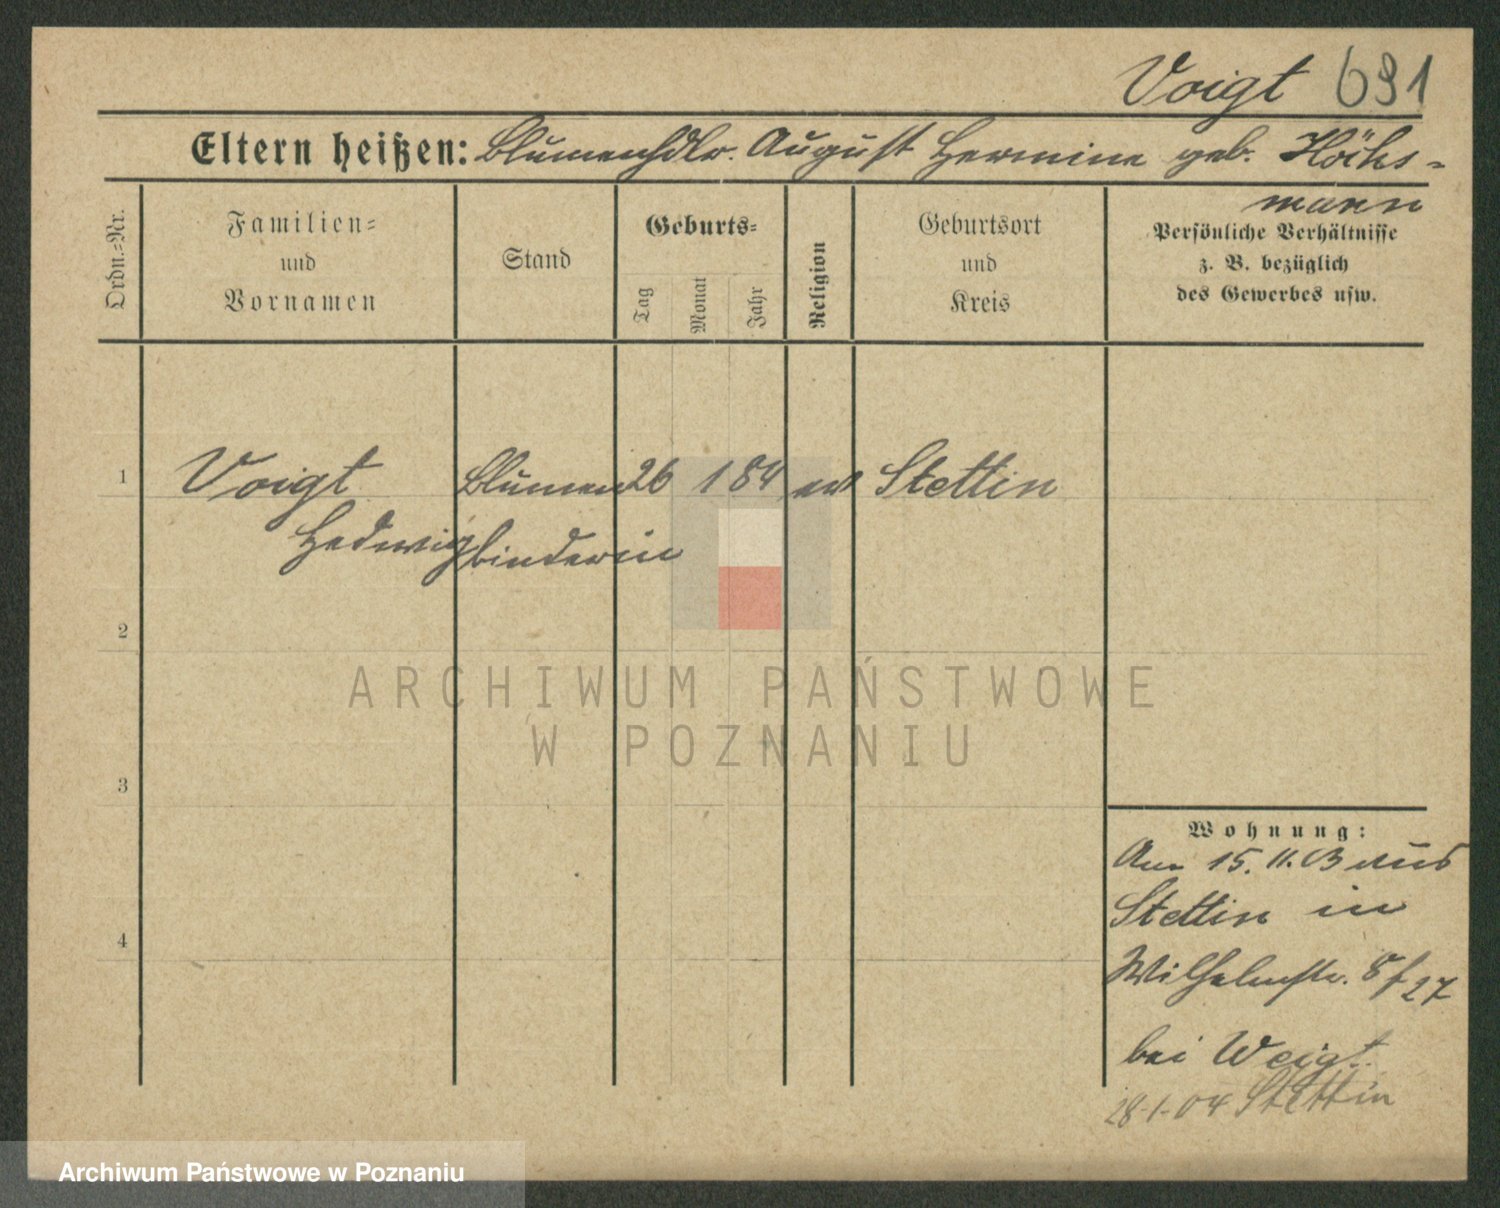 Voigt 691
Eltern heißen: Blumenhdlr. August Hermine geb. Höchs-
mann
Ordn.-Nr.
Familien-
und
Vornamen
Stand
Geburts-
Tag
Monat
Jahr
Religion
Geburtsort
und
Kreis
Persönliche Verhältnisse
z. B. bezüglich
des Gewerbes usw.
1 Voigt Blumen 26 1 84 ev Stettin
Hedwig binderin
2
3
4
ARCHIWUM PAŃSTWOWE
W POZNANIU
Wohnung:
Am 15. 11. 03 aus
Stettin in
Wilhelmstr. 27
bei Weigt
28-1-04 Stettin
Archiwum Państwowe w Poznaniu